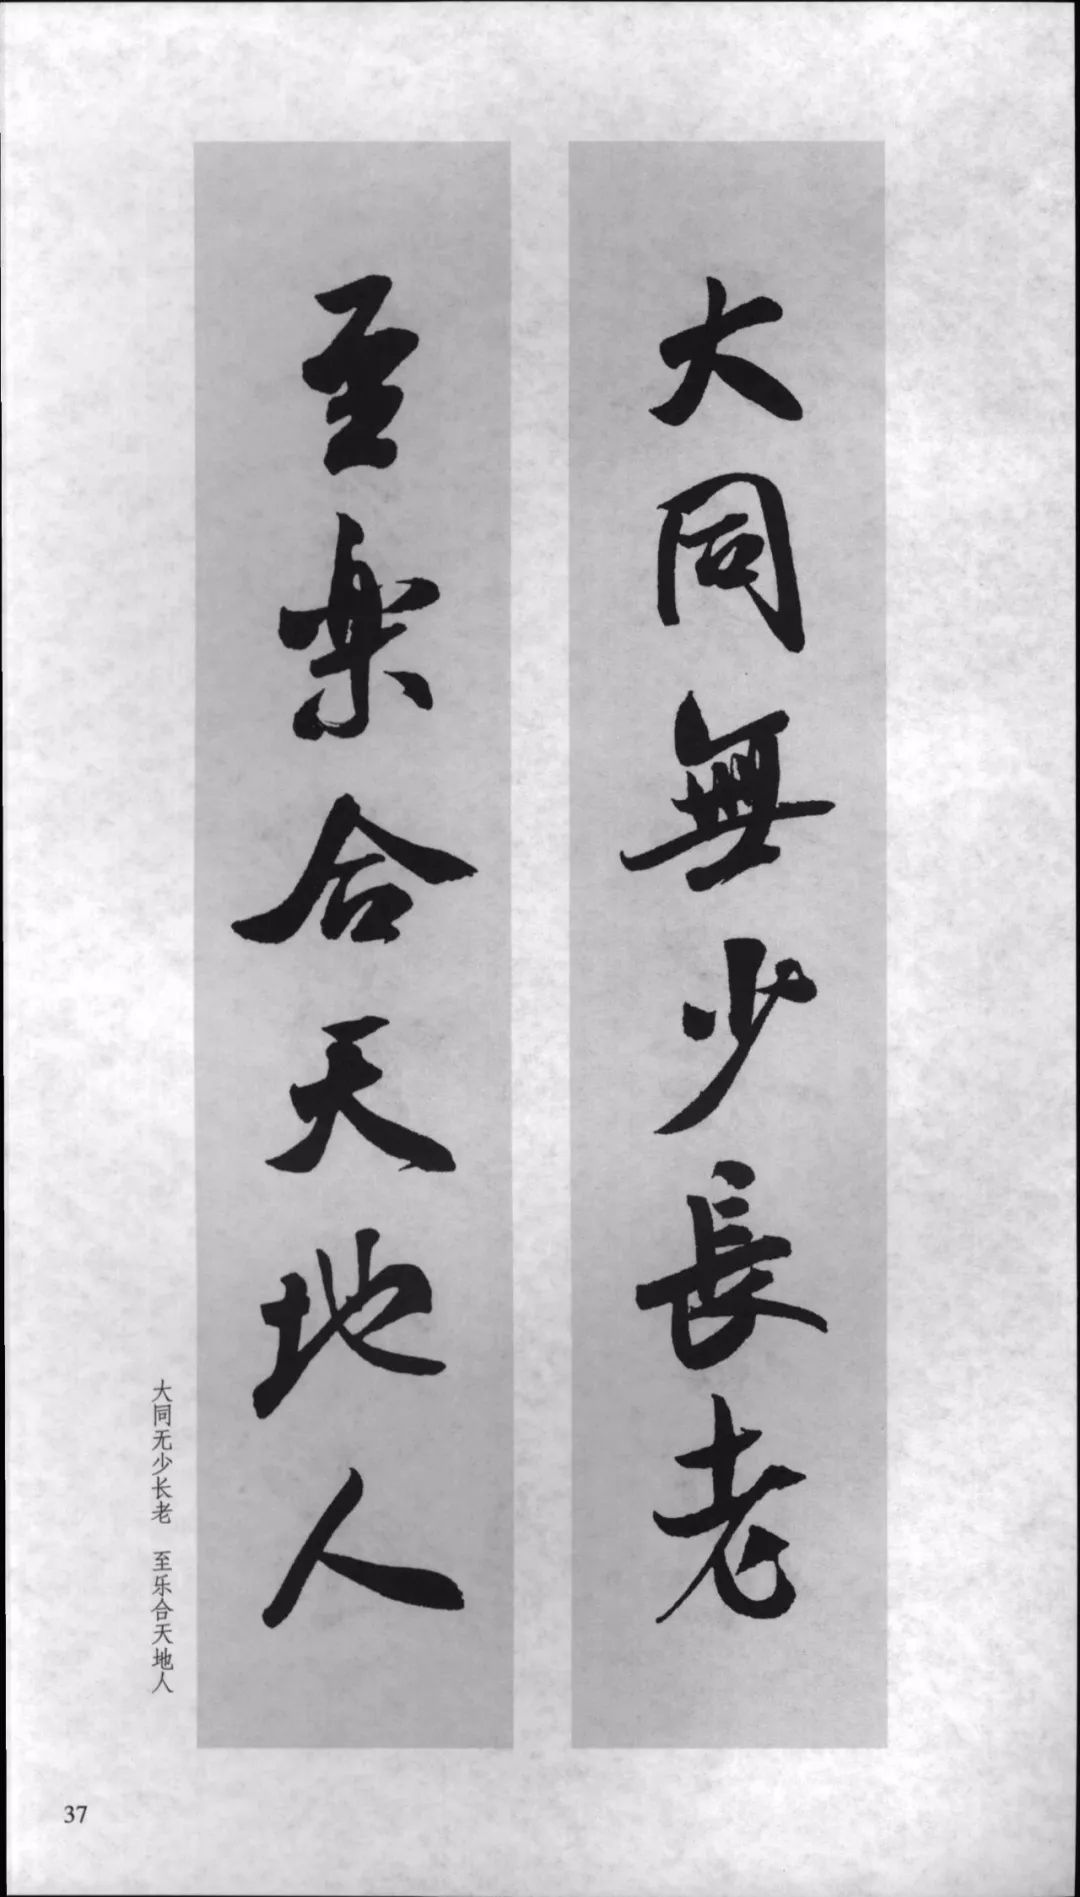 大同無少長老
至楽合天地人
大同无少长老 至乐合天地人
37